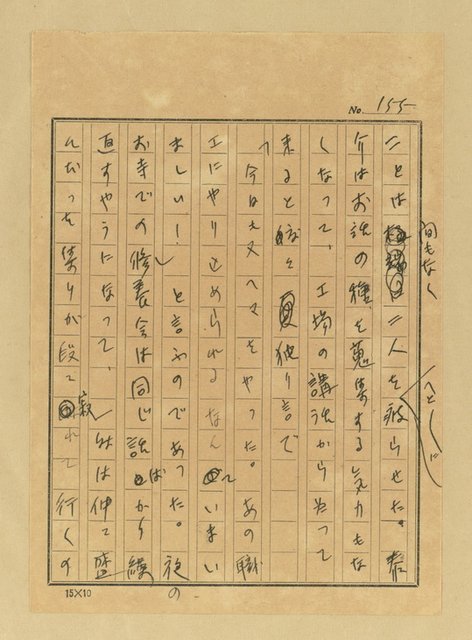 No. 155
ことは間もなく二人を疲らせた。泰
介はお話の種を蒐集する気力もな
くなって、工場の講話からって
来ると独り言で
「今日は又ヘマをやった。あの職
工にやり込められるなんていまい
ましい！と言ふのであった。夜の
お寺での修養会は同じ話ばかり繰
返すやうになって、は仲々盛
んだった集りが段々寂れて行くの
15×10